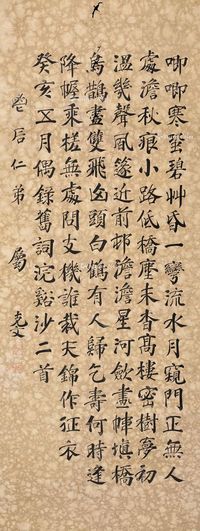 唧唧寒蛩碧艸昏一彎流水月窺門正無人
處澹秋痕小路低橋塵未杳高樓密樹夢初
溫幾聲風篴近前邨澹澹星河斂畫幃填橋
烏鵲盡雙飛頭白鶴有人歸乞壽何時逢
降幄乘槎無處問支機誰裁天錦作征衣
癸亥五月偶錄舊詞浣谿沙二首
仁弟 屬 克文